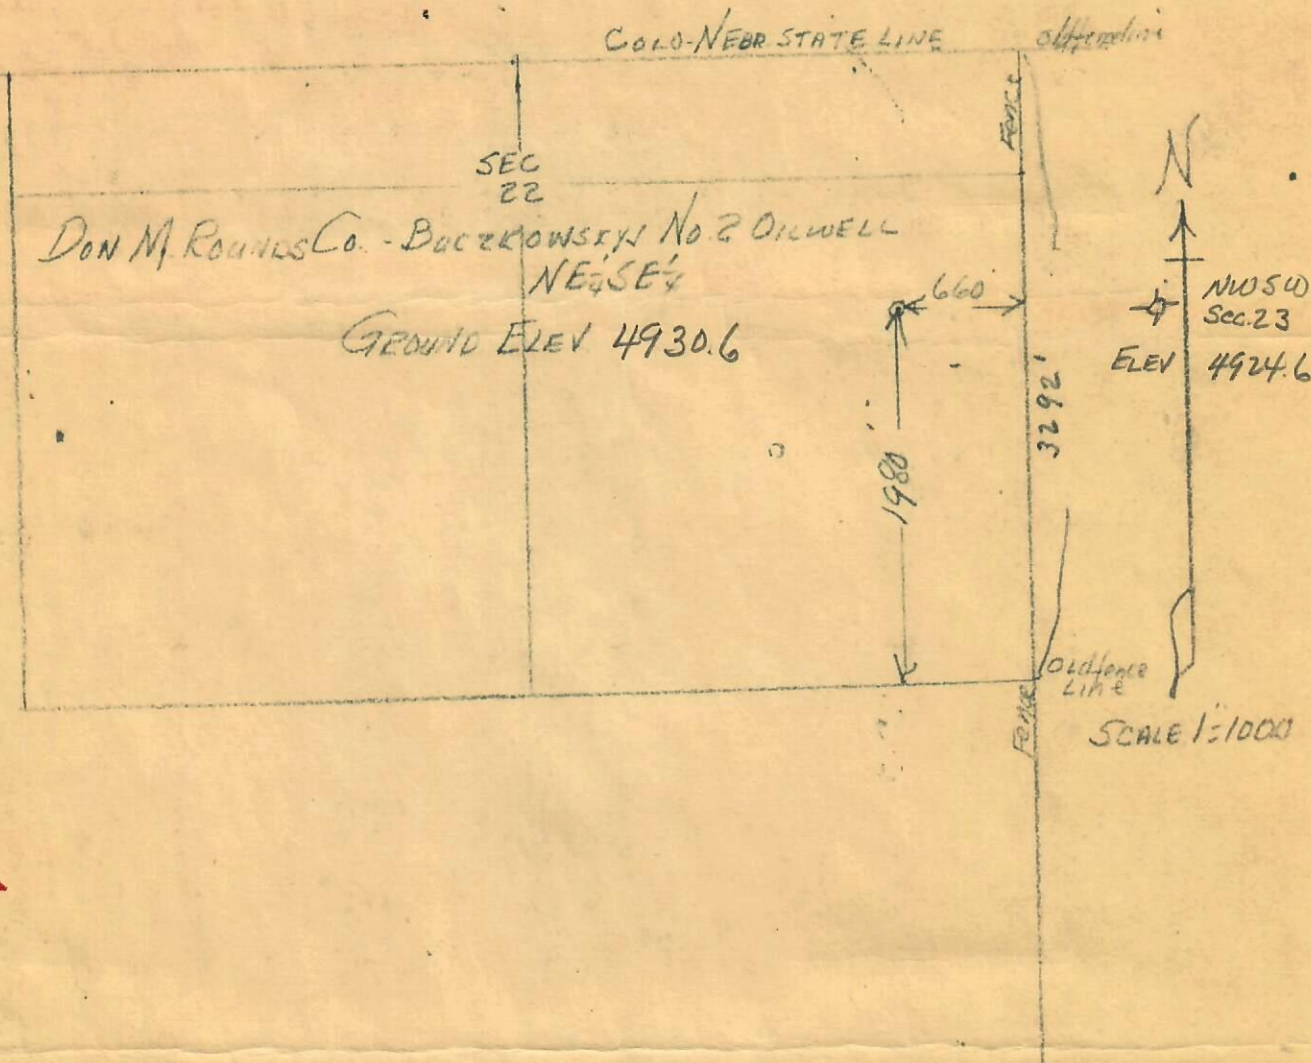 COLO-NEBR STATE LINE
Fence
N
SEC
22
DON M. ROUNDS CO. - BUCZKOWSKYJ NO. 2 OILWELL
NE¼SE¼
GROUND ELEV 4930.6
660'
NWSW
Sec. 23
ELEV 4924.6
3292'
1980'
Old fence
Line
Fence
SCALE 1"=1000'